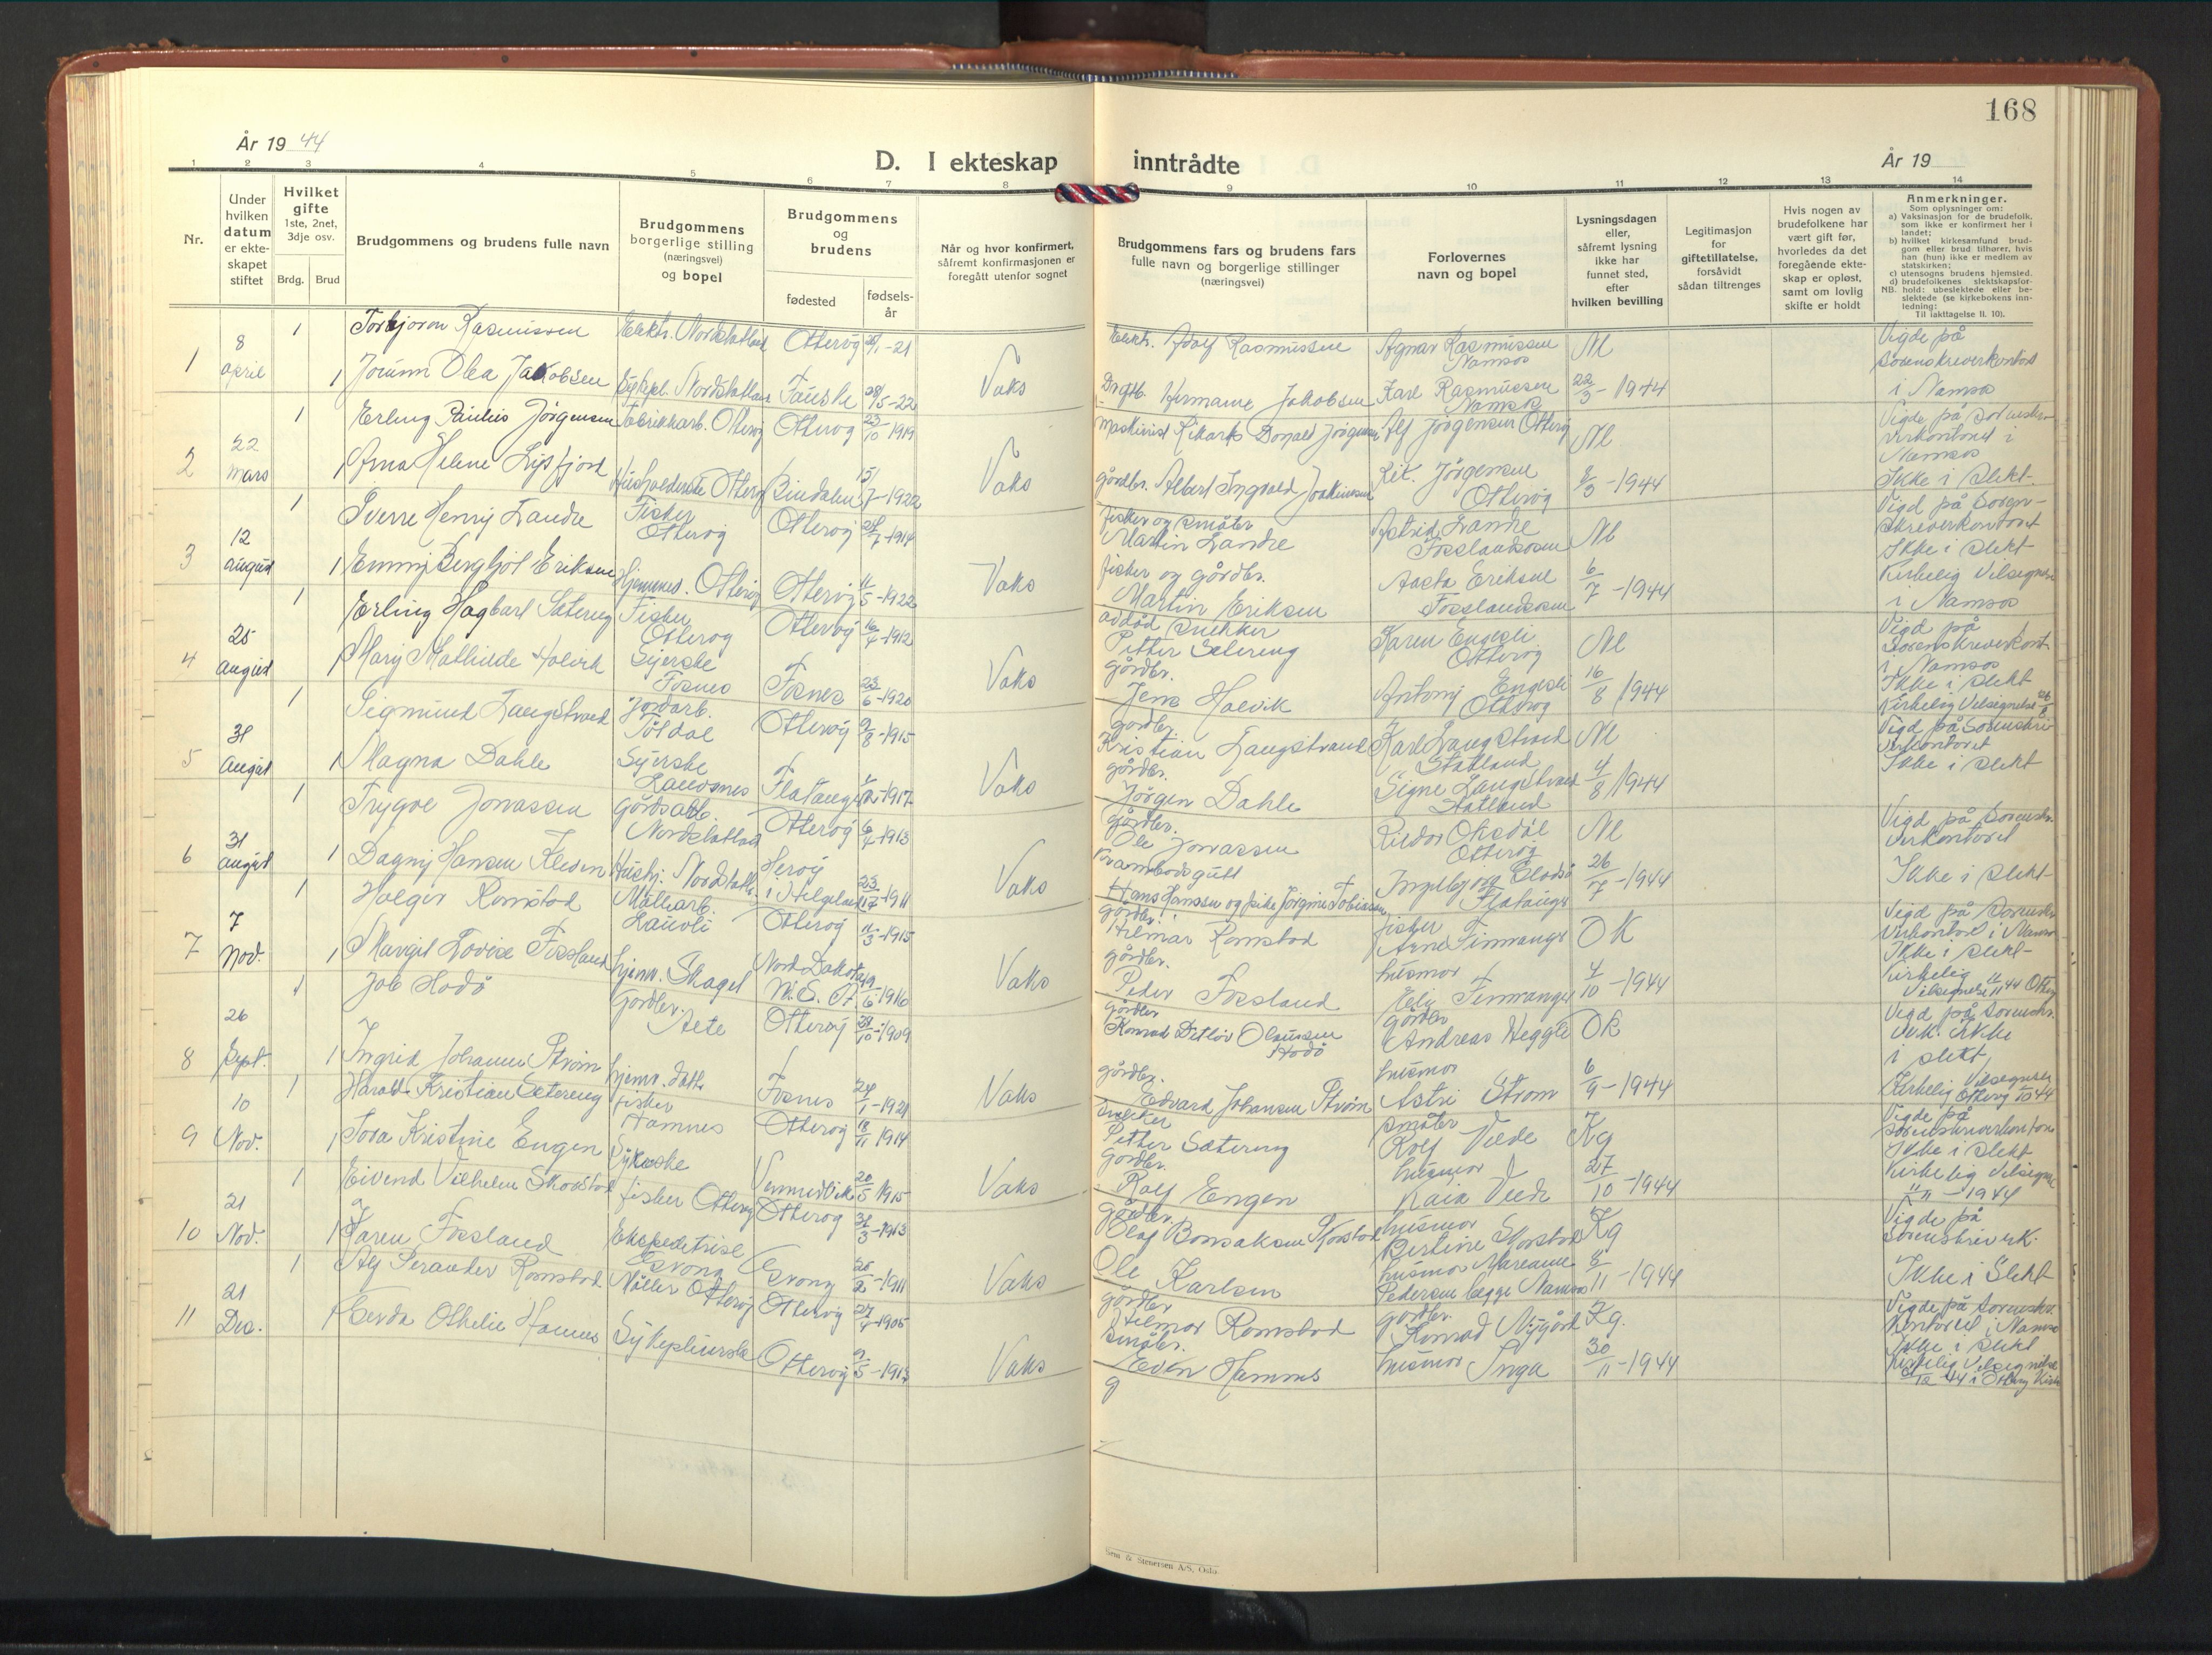 168
År 19 44
D. I ekteskap inntrådte
År 19
1 2 3 4 5 6 7 8 9 10 11 12 13 14
Nr.
Under
hvilken
datum
er ekte-
skapet
stiftet
Hvilket
gifte
1ste, 2net,
3dje osv.
Brdg. Brud
Brudgommens og brudens fulle navn
Brudgommens
borgerlige stilling
(næringsvei)
og bopel
Brudgommens
og
brudens
fødested
fødsels-
år
Når og hvor konfirmert,
såfremt konfirmasjonen er
foregått utenfor sognet
Brudgommens fars og brudens fars
fulle navn og borgerlige stillinger
(næringsvei)
Forlovernes
navn og bopel
Lysningsdagen
eller,
såfremt lysning
ikke har
funnet sted,
efter
hvilken bevilling
Legitimasjon
for
giftetillatelse,
forsåvidt
sådan tiltrenges
Hvis nogen av
brudefolkene har
vært gift før,
hvorledes da det
foregående ekte-
skap er opløst,
samt om lovlig
skifte er holdt
Anmerkninger.
Som oplysninger om:
a) Vaksinasjon for de brudefolk,
som ikke er konfirmert her i
landet;
b) hvilket kirkesamfund brud-
gom eller brud tilhører, hvis
han (hun) ikke er medlem av
statskirken;
c) utensogns brudens hjemsted.
d) brudefolkenes slektskapsfor-
NB. hold: ubeslektede eller be-
slektede (se kirkebokens inn-
ledning:
Til iakttagelse II. 10).
1
8
april
1 Torbjørn Rasmussen
Elektr. Nordstatland
Otterøy
/1-21
1 Jorunn Olea Jakobsen
Nordstatland
Fauske
28/5-22
Vaks
Elektr. Adolf Rasmussen
Hermann Jakobsen
Agnar Rasmussen
Namsos
Karl Rasmussen
Namsos
M
22/3-1944
Vigde på
Sorenskriverkontoret
i Namsos
2
22
Mars
1 Erling Paulus Jörgensen
Fabrikkarb. Otterøy
Otterøy
23/10 1919
1 Arna Helene Lysfjord
Otterøy
Bindalen
15/7-1922
Vaks
Maskinist Rikart Donald Jörgensen
gårdbr. Albert Ingvald Joakimsen
Alf Jörgensen Otterøy
Rik. Jörgensen
Otterøy
M
8/3-1944
Vigde på Sorenskri-
verkontoret i
Namsos
Ikke i slekt.
3
12
august
1 Sverre Henry Landre
Fisker
Otterøy
Otterøy
/7-1914
1 Emmy Bergljot Eriksen
Hjemmev. Otterøy
Otterøy
11/5-1922
Vaks
fisker og småbr
Martin Landre
fisker og gårdbr.
Martin Eriksen
Astrid Landre
Fosslandsosen
Aasta Eriksen
Fosslandsosen
M
6/7-1944
Vigd på Soren-
skriverkontoret
Ikke i slekt
Kirkelig Velsignelse
i Namsos
4
25
august
1 Erling Hagbart Sætereng
Fisker
Otterøy
Otterøy
16/4-1912
1 Mary Mathilde Holvik
Syerske
Fosnes
Fosnes
23/6-1920
Vaks
avdöd snekker
Petter Setereng
Gårdbr.
Jens Holvik
Karen Engesli
Otterøy
Antony Engesli
Otterøy
M
16/8 1944
Vigd på
Sorenskriverkont.
i Namsos
Ikke i slekt
Kirkelig Velsignelse
5
31
august
1 Sigmund Langstrand
Jordarb.
Töldal
Otterøy
9/8-1915
1 Magna Dahle
Syerske
Lauvsnes
Flatanger
-1917
Vaks
gårdbr.
Kristian Langstrand
gårdbr.
Jörgen Dahle
Karl Langstrand
Statland
Signe Langstrand
Statland
M
4/8 1944
Vigd på Sorenskri
verkontoret
Ikke i slekt
6
31
august
1 Trygve Jonassen
Gårdsarb.
Nordstatland
Otterøy
6/4-1913
1 Dagny Hansen Kleven
Hushj. Nordstatl.
Herøy
i Helgeland
23/7-1911
Vaks
Gårdbr.
Ole Jonassen
Krambodgutt
Hans Hanssen og pike Jörgine Tobiassen
Reidar Oksdöl
Otterøy
Ingebjörg Elodsö
Flatanger
M
26/7-1944
Vigd på Sorenskr.
verkontoret
Ikke i slekt
7
7
Nov.
1 Holger Romstad
Möllearb.
Lauvli
Otterøy
11/3-1915
1 Margit Lovise Fossland
hjemv. Skagel
Nord Dakota
U.S.A
19/6-1916
Vaks
Gårdbr.
Hilmar Romstad
gårdbr.
Peder Fossland
fisker
Arne Finvanger
husmor
Elie Finvanger
OK
4/10-1944
Vigd på Sorenskr
verkontoret i Namsos
Ikke i slekt-
Kirkelig
Velsignelse 44
8
26
Sept.
1 Job Hodö
Gårdbr.
Aete
Otterøy
31/10-1909
1 Ingrid Johanne Ström
hjemv. datt.
Fosnes
24/1-1921
Vaks
Gårdbr
Konrad Detlöv Olaussen
Hodö
gårdbr.
Edvard Johansen Ström
gårdbr
Andreas Heggli
husmor
Astri Ström
OK
6/9-1944
Vigd på Sorenskr.
verk. Ikke
i slekt,
Kirkelig Velsignelse
Otterøy 44
9
10
Nov.
1 Harald Kristian Setereng
fisker
Hamnes
Otterøy
18/11 1914
1 Tora Kristine Engen
Sykeske
Vemundvik
20/5 1915
Vaks
Snekker
Petter Sætereng
Gårdbr.
Rolf Engen
småbr
Rolf Vede
husmor
Kaia Vede
Kg
27/10-1944
Vigde på
Sorenskriverkontor
Ikke i slekt
Kirkelig Velsignelse
/11-1944
10
21
Nov.
1 Eivend Vilhelm Skorstad
fisker Otterøy
Otterøy
31/3-1913
1 Karen Fossland
Ekspeditrise
Gravvik
-1911
Vaks
Gårdbr.
Olaf Bonsaksen Skorstad
Ole Karlsen
husmor
Bertine Skorstad
husmor Mareanne
Pedersen begge Namsos
Kg
8/11-1944
Vigde på
Sorenskriverk.
Ikke i Slekt
11
21
Des.
1 Alf Peranter Romstad
Möller Otterøy
Otterøy
27/4-1905
1 Gerda Othelie Hamnes
Sykepleierske
Otterøy
/5-1913
Vaks
Gårdbr
Hilmar Romstad
småbr.
Even Hamnes
gårdbr.
Konrad Nygård
husmor Inga
Kg.
30/11-1944
Vigde på Sorenskr.
kontoret i Namsos
Ikke i slekt
Kirkelig Velsignelse
44 i Otterøy Kirke
& Stenersen A/S, Oslo.